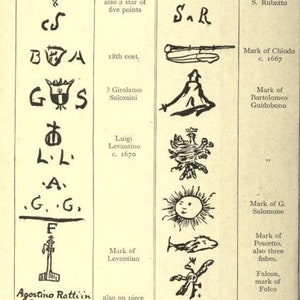 cS
also a star of
five points
B A
18th cent.
G S
? Girolamo
Salomini
L. L.
A.
G. G.
Luigi
Levantino
c. 1670
F
Mark of
Levantino
Agostino Ratti in
also on piece
S R
S. Rubatto
Mark of Chiodo
c. 1667
Mark of
Bartolomeo
Guidobono
"
Mark of G.
Salomone
Mark of
Pescetto,
also three
fishes.
Falcon,
mark of
Folco